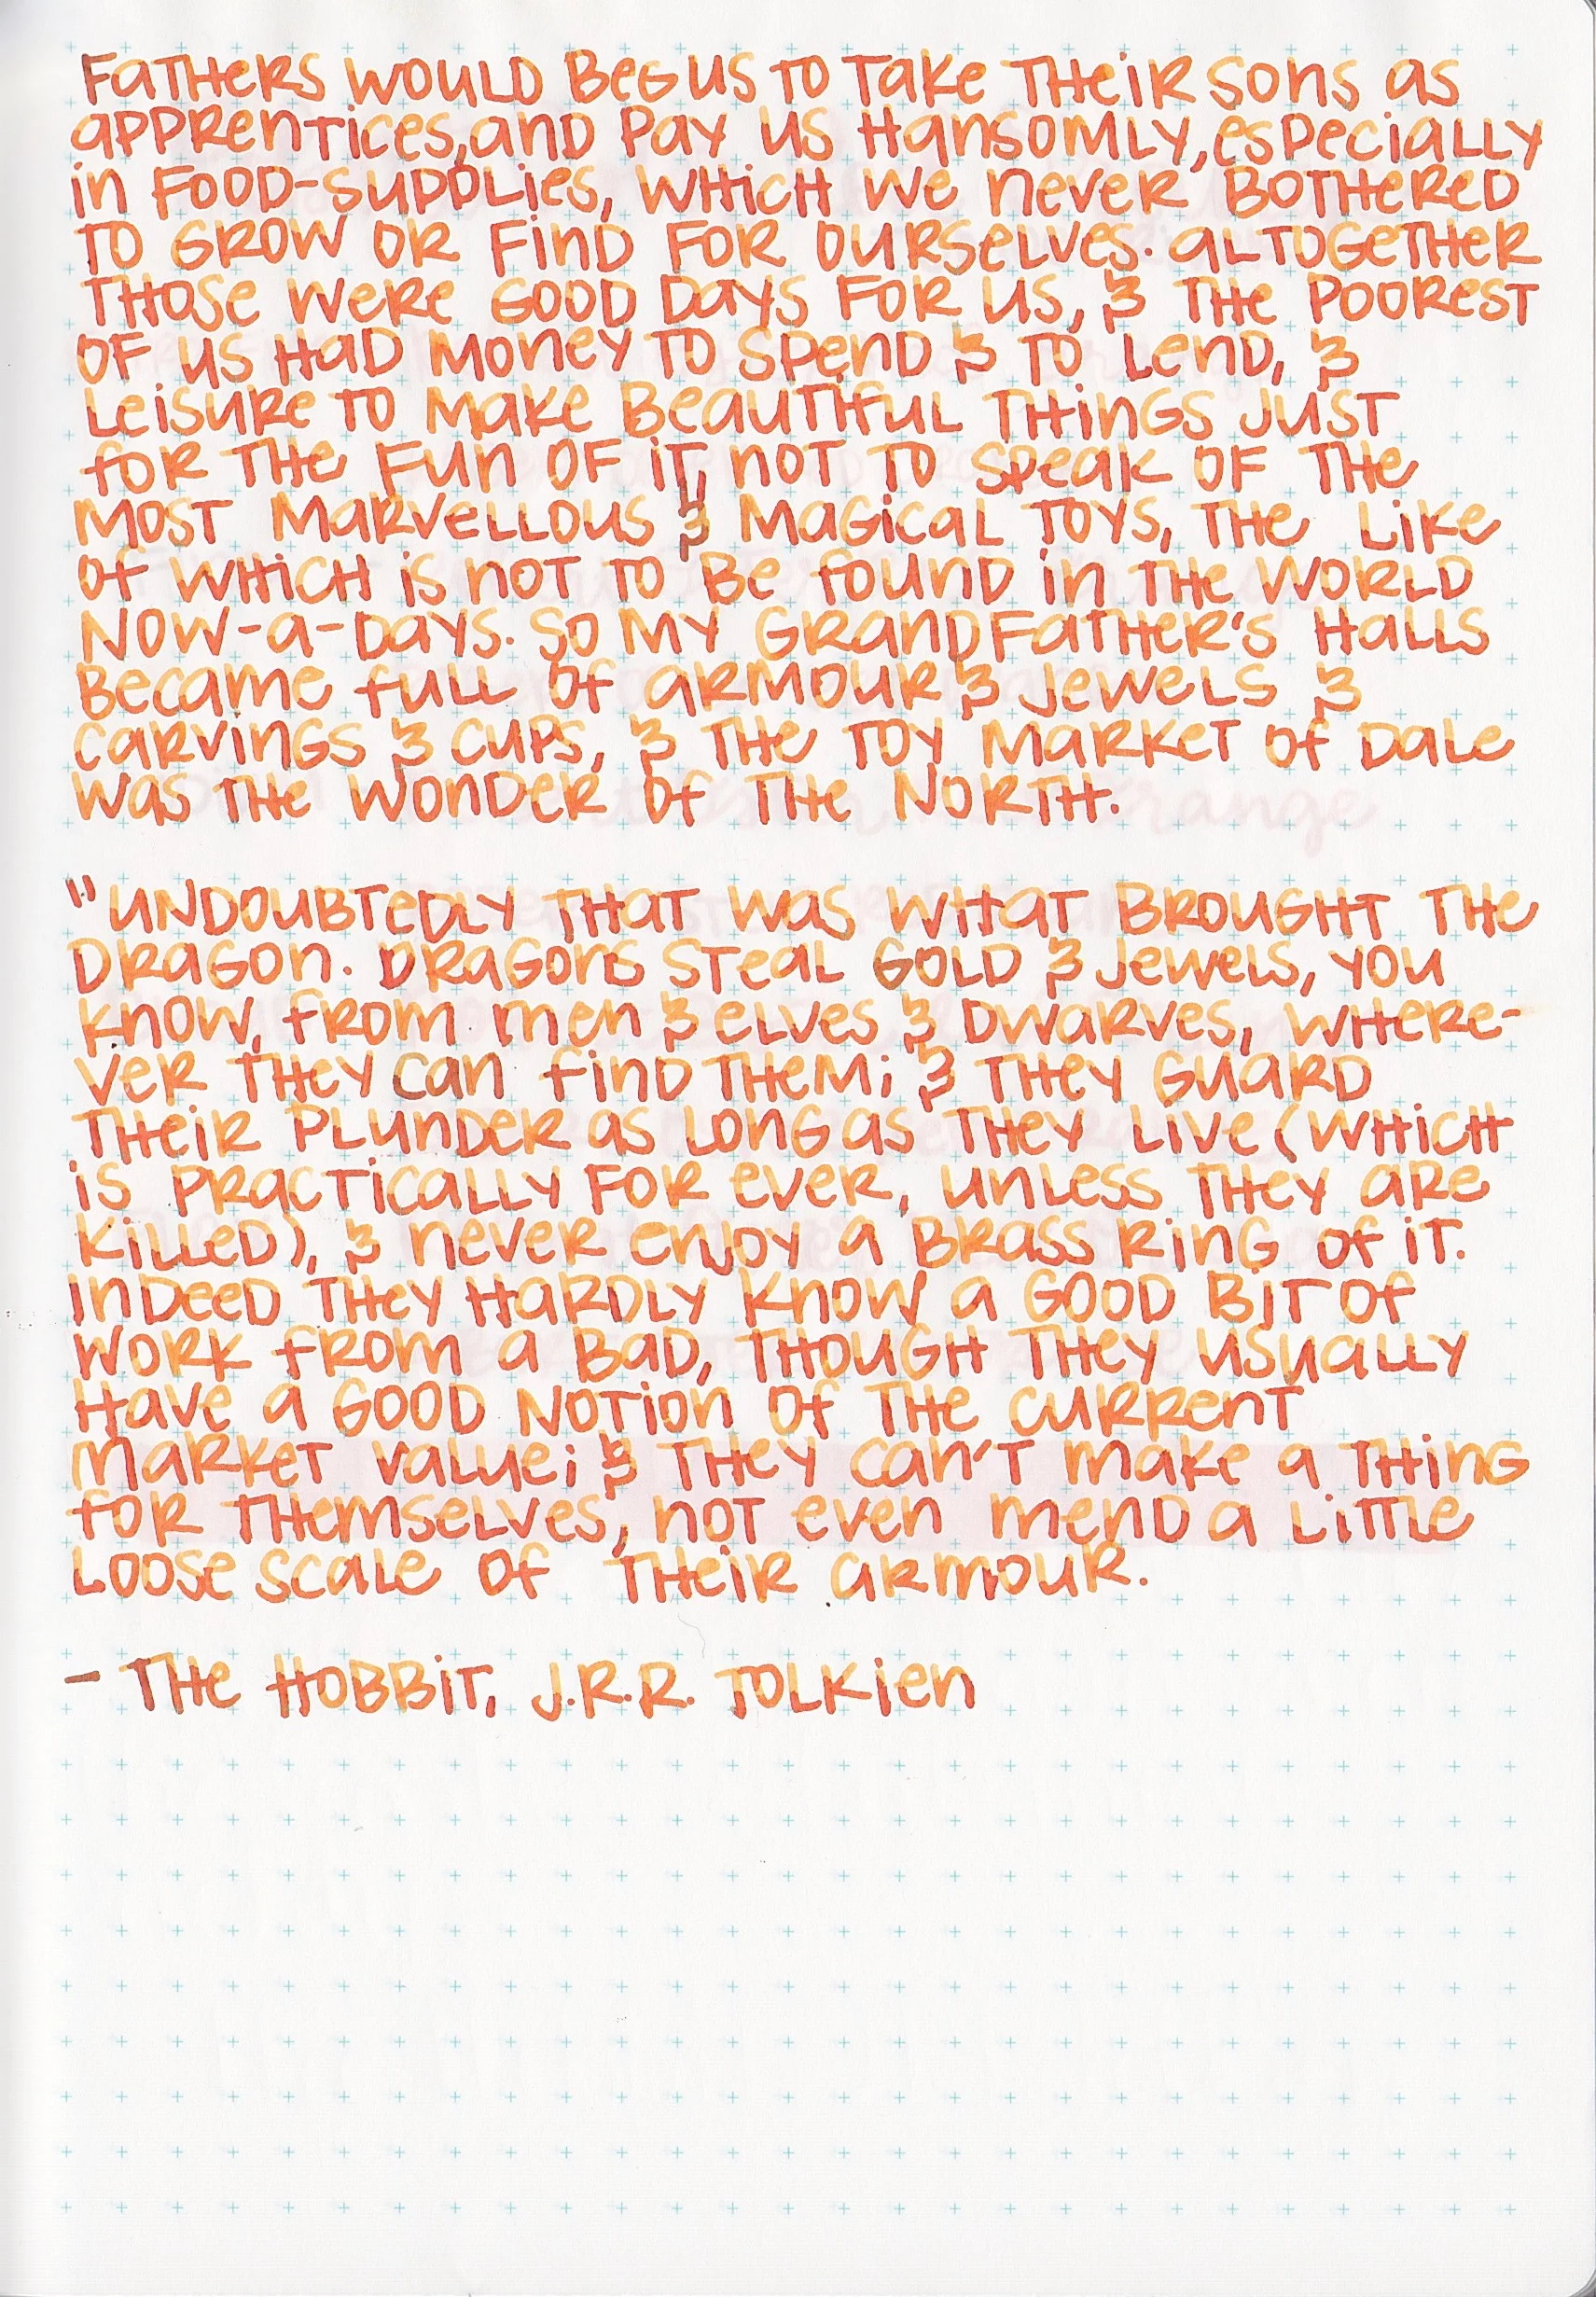 Fathers would beg us to take their sons as
apprentices, and pay us hansomly, especially
in food-supplies, which we never bothered
to grow or find for ourselves. Altogether
those were good days for us, & the poorest
of us had money to spend & to lend, &
leisure to make beautiful things just
for the fun of it, not to speak of the
most marvellous & magical toys, the like
of which is not to be found in the world
now-a-days. So my grandfather's halls
became full of armour & jewels &
carvings & cups, & the toy market of Dale
was the wonder of the North.
"Undoubtedly that was what brought the
dragon. Dragons steal gold & jewels, you
know, from men & elves & dwarves, where-
ver they can find them; & they guard
their plunder as long as they live (which
is practically for ever, unless they are
killed), & never enjoy a brass ring of it.
Indeed they hardly know a good bit of
work from a bad, though they usually
have a good notion of the current
market value; & they can't make a thing
for themselves, not even mend a little
loose scale of their armour.
- The Hobbit, J.R.R. Tolkien